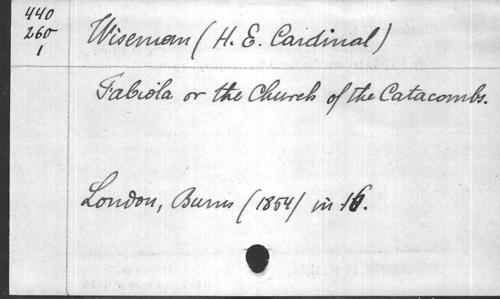 440
260
1
Wiseman (H. E. Cardinal)
Fabiola or the Church of the Catacombs.
London, Burns (1854) in 16.